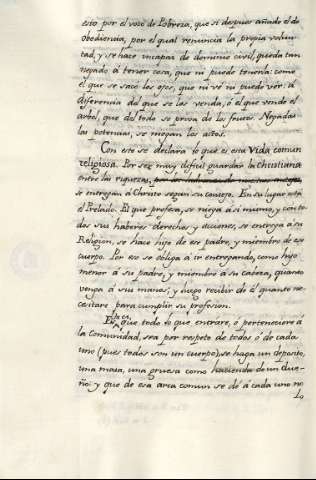 esto por el voto de Pobreza, que si despues añade el de
obediencia, por el qual renuncia la propia volun-
tad, y se hace incapaz de dominio civil, queda tan
negado á tener cosa, que ni puede tenerla: como
el que se saco los ojos, que ni vé ni puede ver: á
diferencia del que se los venda, ó el que vende el
arbol, que del todo se priva de los frutos. Negadas
las potencias, se niegan los actos.
Con esto se declara lo que es esta Vida comun
religiosa. Por ser muy dificil guardar la Christiana
entre las riquezas,
se entregan á Christo segun su consejo. En su lugar está
el Prelado. El que profesa, se niega á si mismo, y con to-
dos sus haberes derechos y acciones, se entrega á su
Religion, se hace hijo de ese padre, y miembro de ese
cuerpo. Por eso se obliga á ir entregando, como hijo
menor á su padre, y miembro á su cabeza, quanto
venga á sus manos, y luego recibir de él quanto ne-
cesitare para cumplir su profesion.
Esto es, que todo lo que entrare, ó perteneciere á
la Comunidad, sea por respeto de todos ó de cada
uno (pues todos son un cuerpo), se haga un deposito,
una masa, una gruesa como hacienda de un due-
ño: y que de esa arca comun se dé á cada uno no
lo